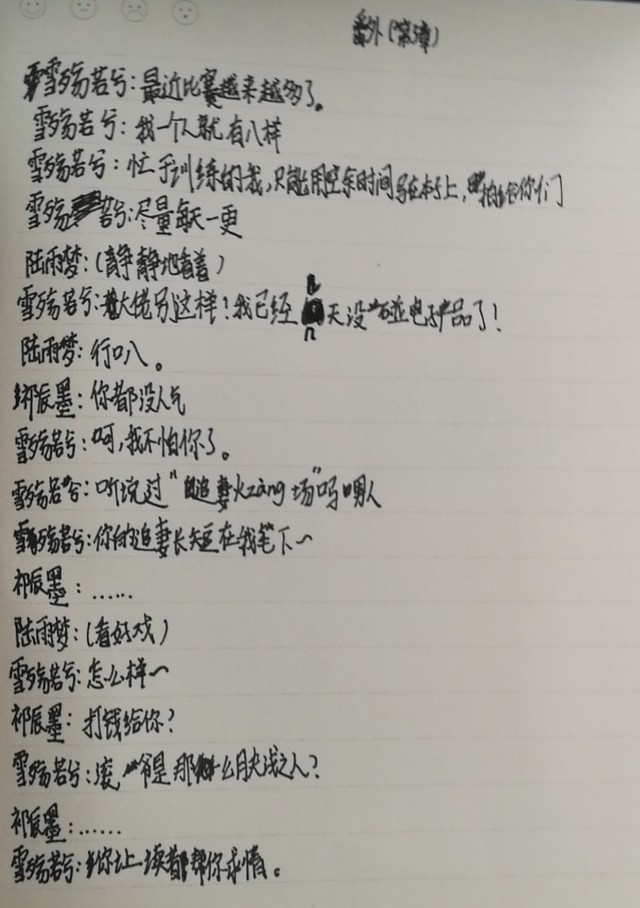 番外(常漳)
雪殇若兮:最近比赛越来越多了。
雪殇若兮:我一个人就有八样
雪殇若兮:忙于训练的我,只能用空余时间写在本子上,拍给你们
雪殇若兮:尽量每天一更
陆雨梦:(静静地看着)
雪殇若兮:大佬别这样!我已经n天没碰电子产品了!
陆雨梦:行叭。
祁辰墨:你都没人气
雪殇若兮:呵,我不怕你了。
雪殇若兮:听说过“追妻火zàng场”吗男人
雪殇若兮:你的追妻长短在我笔下~
祁辰墨:……
陆雨梦:(看好戏)
雪殇若兮:怎么样~
祁辰墨:打钱给你?
雪殇若兮:滚,爷是那么肤浅之人?
祁辰墨:……
雪殇若兮:你让读者帮你求情。